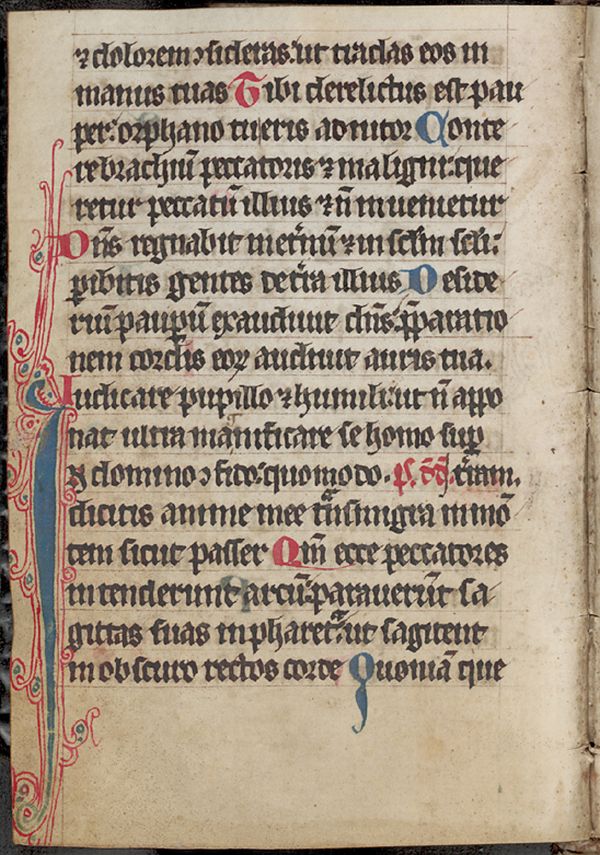 ⁊ dolorem ɔsideras: ut tradas eos in
manus tuas Tibi derelictus est pau
per: orphano tu eris adiutor Conte
re brachiū peccatoris ⁊ maligni: que
retur peccatū illius ⁊ n̄ inuenietur
Dn̄s regnabit inet̄nū ⁊ in sc̄lm sc̄li:
ꝑibitis gentes de t̄ra illius Deside
riū pauꝑū exaudiuit dn̄s: p̄paratio
nem cordis eoꝝ audiuit auris tua.
Iudicare pupillo ⁊ humili: ut n̄ appo
nat ultra mag̅ificare se homo suꝑ
domino ɔfido: quomodo
dicitis anime mee t̄nsmigra in mō
tem sicut passer Qm̄ ecce peccatores
intenderunt arcū: parauer̄t sa
gittas suas in pharet̄: ut sagittent
in obscuro rectos corde Quoniā que